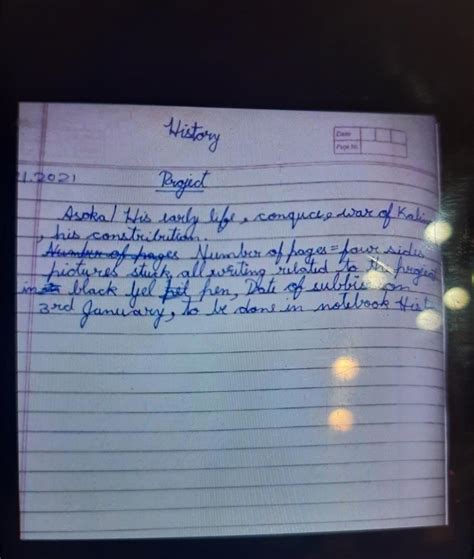 History
Date
Page No.
1.2021
Project
Asoka / His early life, conquce, war of Kalin
, his constribution.
Number of pages Number of pages = four sides
pictures stuck, all writing related to the project
in black jel pen, Date of subbris on
3rd January, to be done in notebook Hist